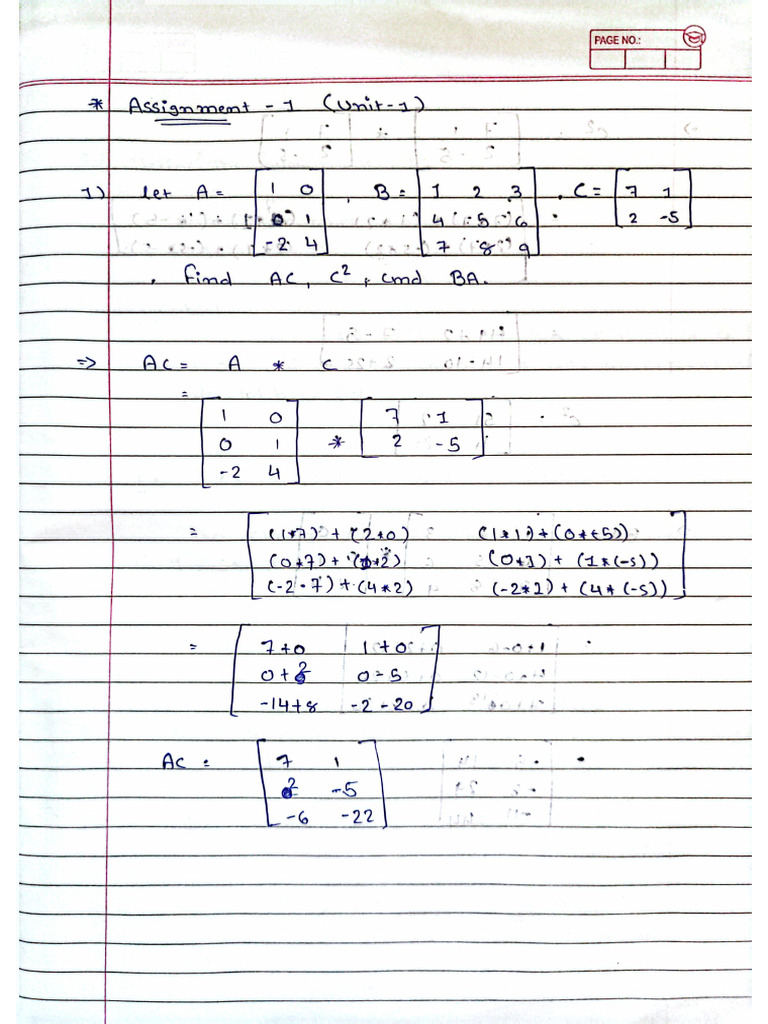 PAGE NO.:
* Assignment - 1 (Unit-1)
1) let A = [1 0 , B = [1 2 3 , C = [7 1
0 1 4 5 6 2 -5]
-2 4] 7 8 9]
. Find AC, C², and BA.
=> AC = A * C
=
1 0 7 1
0 1 * 2 -5
-2 4
= (1*7) + (2*0) (1*1) + (0*-5))
(0*7) + (1*2) (0*1) + (1*(-5))
(-2-7) + (4*2) (-2*1) + (4*(-5))
= 7+0 1+0
0+2 0-5
-14+8 -2-20
AC = 7 1
2 -5
-6 -22